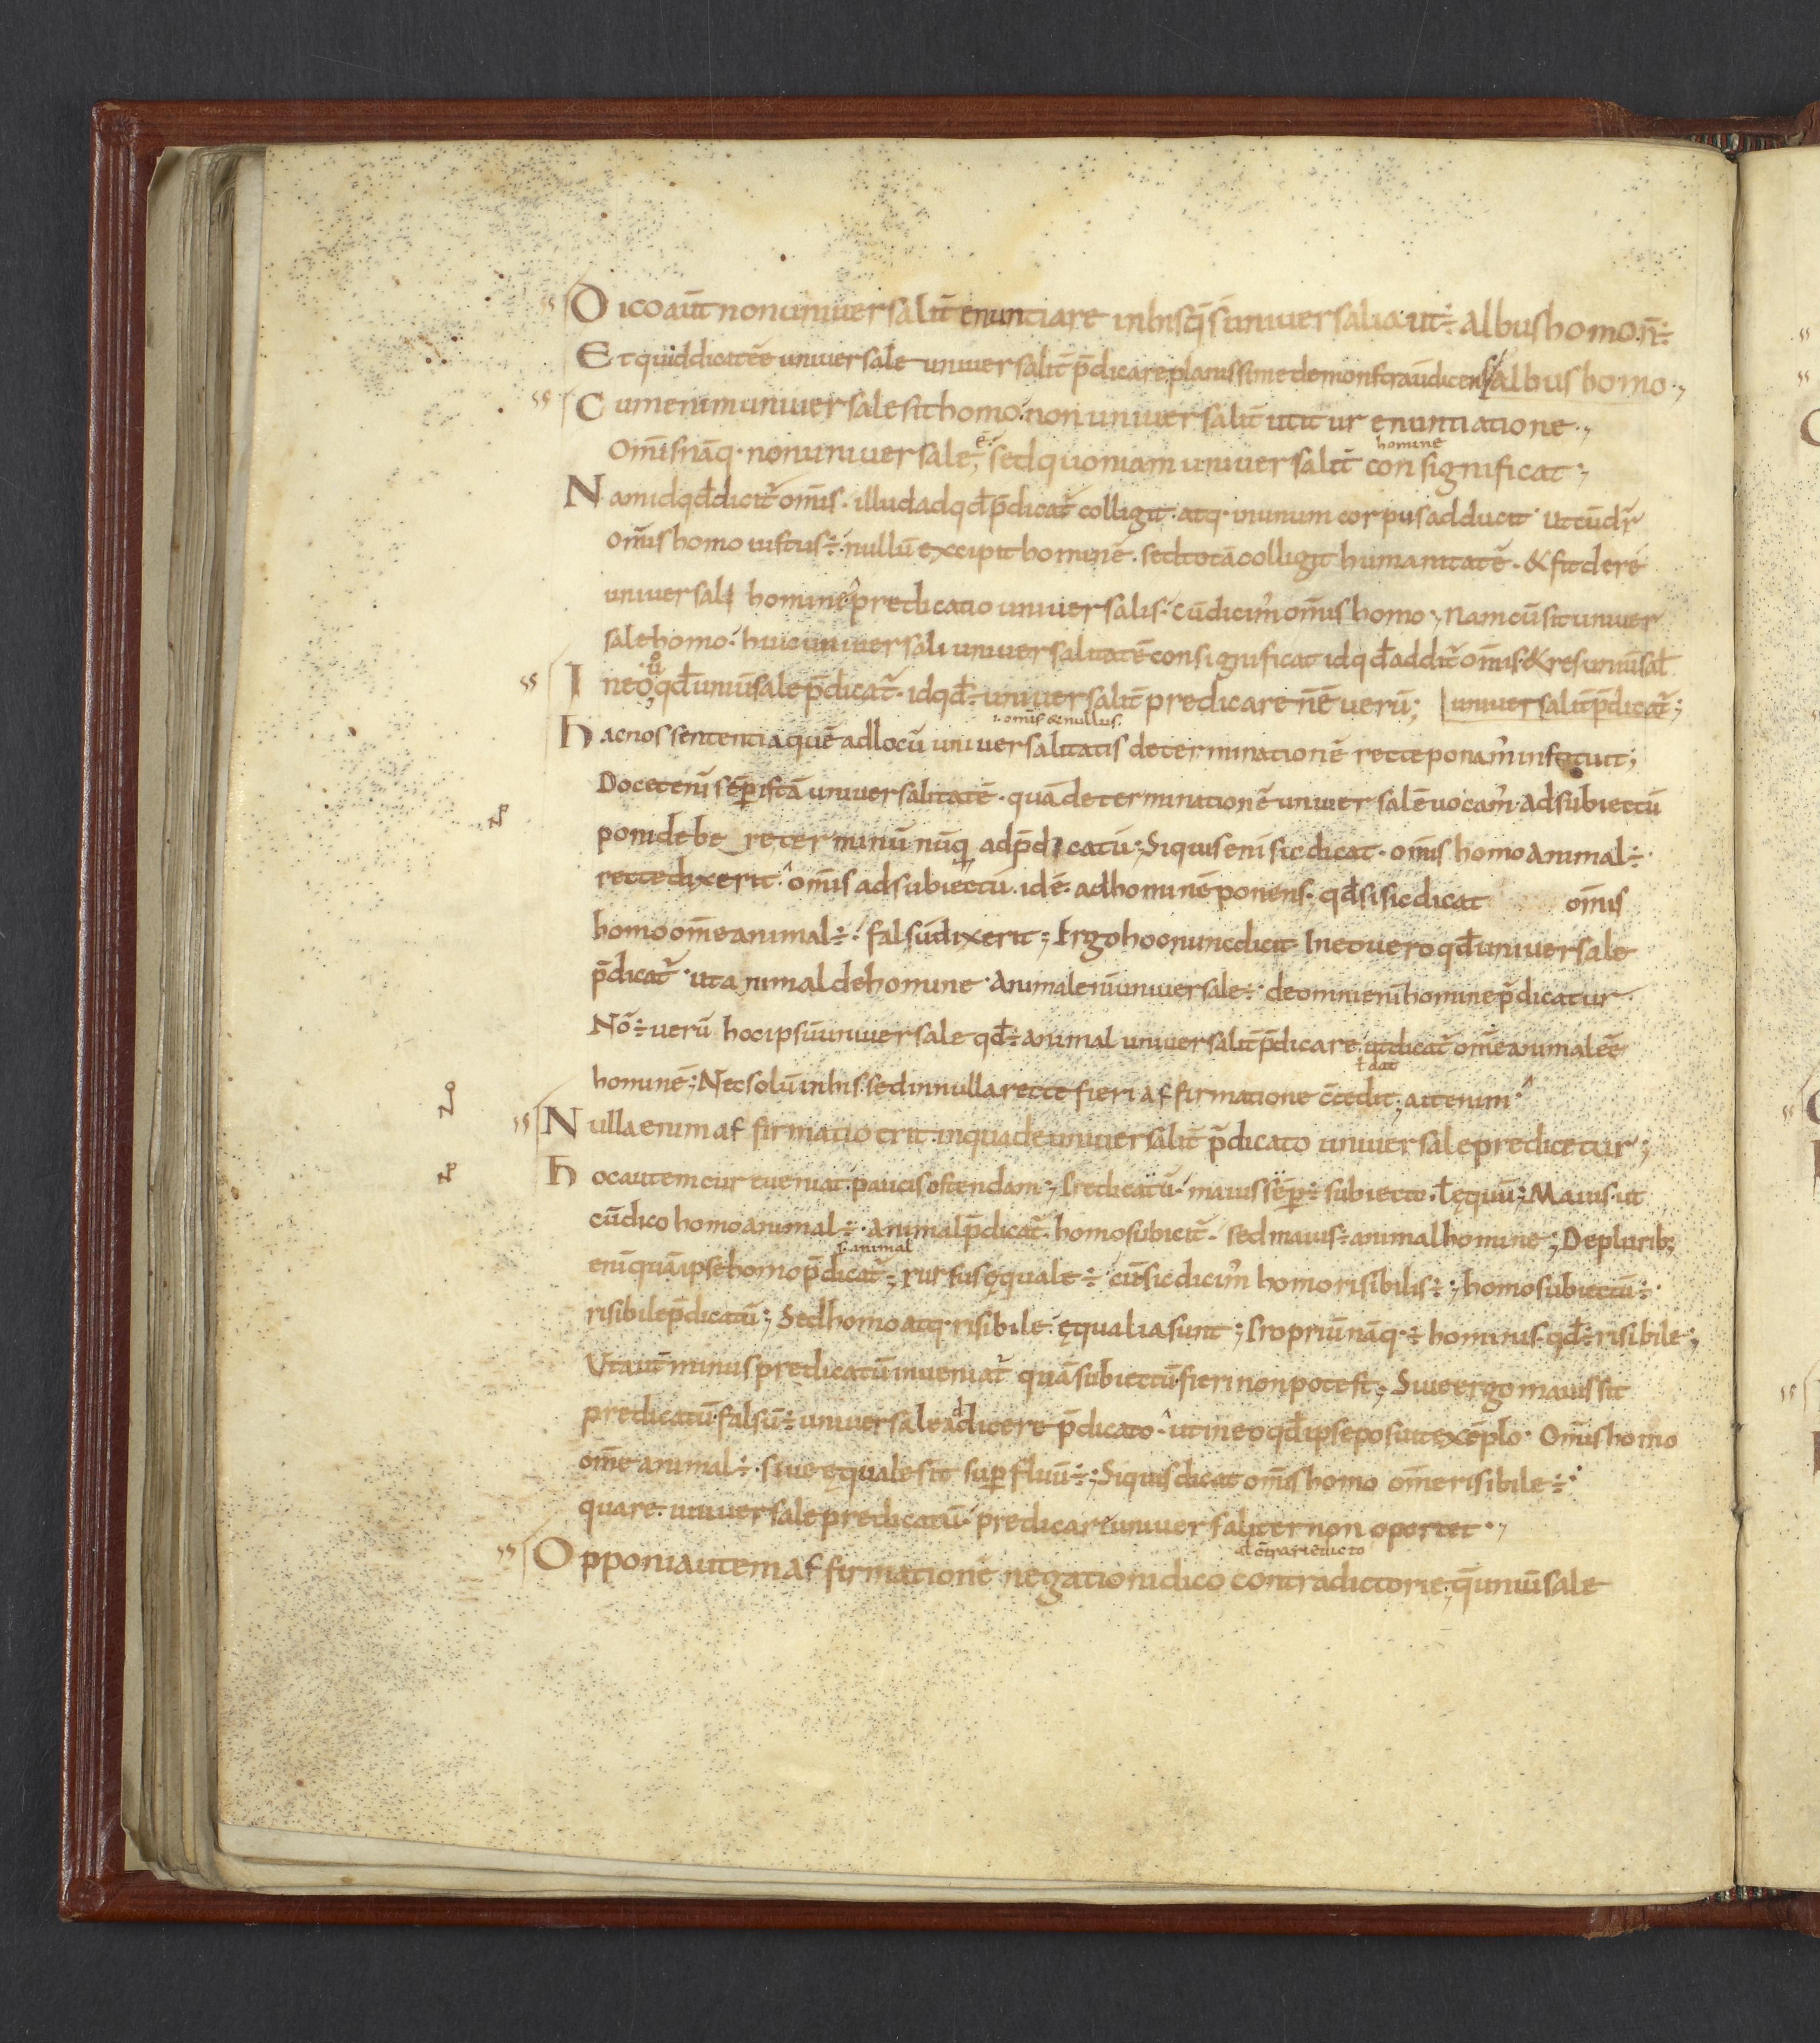 Dico aūt non universalit̄ enuntiare in his q̄ s̄ universalia· ut ÷ albus homo· n̄ ÷
Et quid dicat eē universale universalit̄ p̄dicare planissime demonstrauit dicens albus homo·,
Cum enim universale sit homo· non universalit̄ utitur enuntiatione·,
Om̄is nāq· non universale ē·; sed quoniam universalit̄ homine consignificat·,
Nam id qđ dicit̄ om̄is· illud ad qđ p̄dicat̄ colligit· atq· in unum corpus adducit· ut cū dr̄
om̄is homo iustus ÷· nullū excipit hominē· sed totā colligit humanitatē· & fit de re
universali homine p̄redicatio universalis· cū dicim̄ om̄is homo; Nam cū sit univer
sale homo· huic universali universalitatē consignificat id qđ addit̄ om̄is· & res univ̄sal
In eo ū qđ univ̄sale p̄dicat̄· id qđ ÷ universalit̄ predicare n̄ ē verū; | universalit̄ p̄dicat̄;
i· omīs & nullus·
Hac nos sententia quē ad locū universalitatis determinationē recte ponam̄ instituit;
Docet enī sēp istā universalitatē· quā determinationē universalē vocam̄· ad subiectū
poni debere terminū nūq̄ ad p̄dicatū; Si quis enī sic dicat· om̄is homo animal ÷·
recte dixerit· om̄is ad subiectū· id ē· ad hominē ponens· qđ si sic dicat om̄is
homo om̄e animal ÷· falsū dixerit; Ergo hoc nunc dicit· In eo vero qđ universale
p̄dicat̄· ut animal de homine· Animal enī universale ÷· de omni enī homine p̄dicatur·
Nō ÷ verū hoc ipsū universale qđ ÷ animal universalit̄ p̄dicare· ut dicat̄ om̄e animal eē
ł dat
hominē; Nec solū in his· sed in nulla recte fieri affirmatione c̄cedit; ait enim
Nulla enim affirmatio erit· in qua de universalit̄ p̄dicato universale predicetur;
Hoc autem cur eveniat· paucis ostendam; Predicatū· maius sēp ÷ subiecto· ł ęquū; Maius· ut
cū dico homo animal ÷· Animal p̄dicat̄· homo subicit̄· sed maius ÷ animal homine; De plurib;
s· animal
enī quā ipse homo p̄dicat̄; rursus ęquale ÷ cū sic dicim̄ homo risibilis ÷; homo subiectū ÷·
risibile p̄dicatū; Sed homo atq· risibile· ęqualia sunt; Propriū nāq· ÷ hominis· qđ ÷ risibile;
Ut aūt minus predicatū inveniat̄ quā subiectū· fieri non potest; Sive ergo maius sit
predicatū· falsū ÷ universale adicere p̄dicato· ut in eo qđ ipse posuit exēplo· Om̄is homo
om̄e animal ÷· sive ęquale sit sup̄fluū ÷; Si quis dicat om̄is homo om̄e risibile ÷·
quare· universale predicatū· predicari universaliter non oportet·,
ad c̄trarie dicto
Opponi autem affirmationē negationi dico contradictorie; q̄ univ̄sale